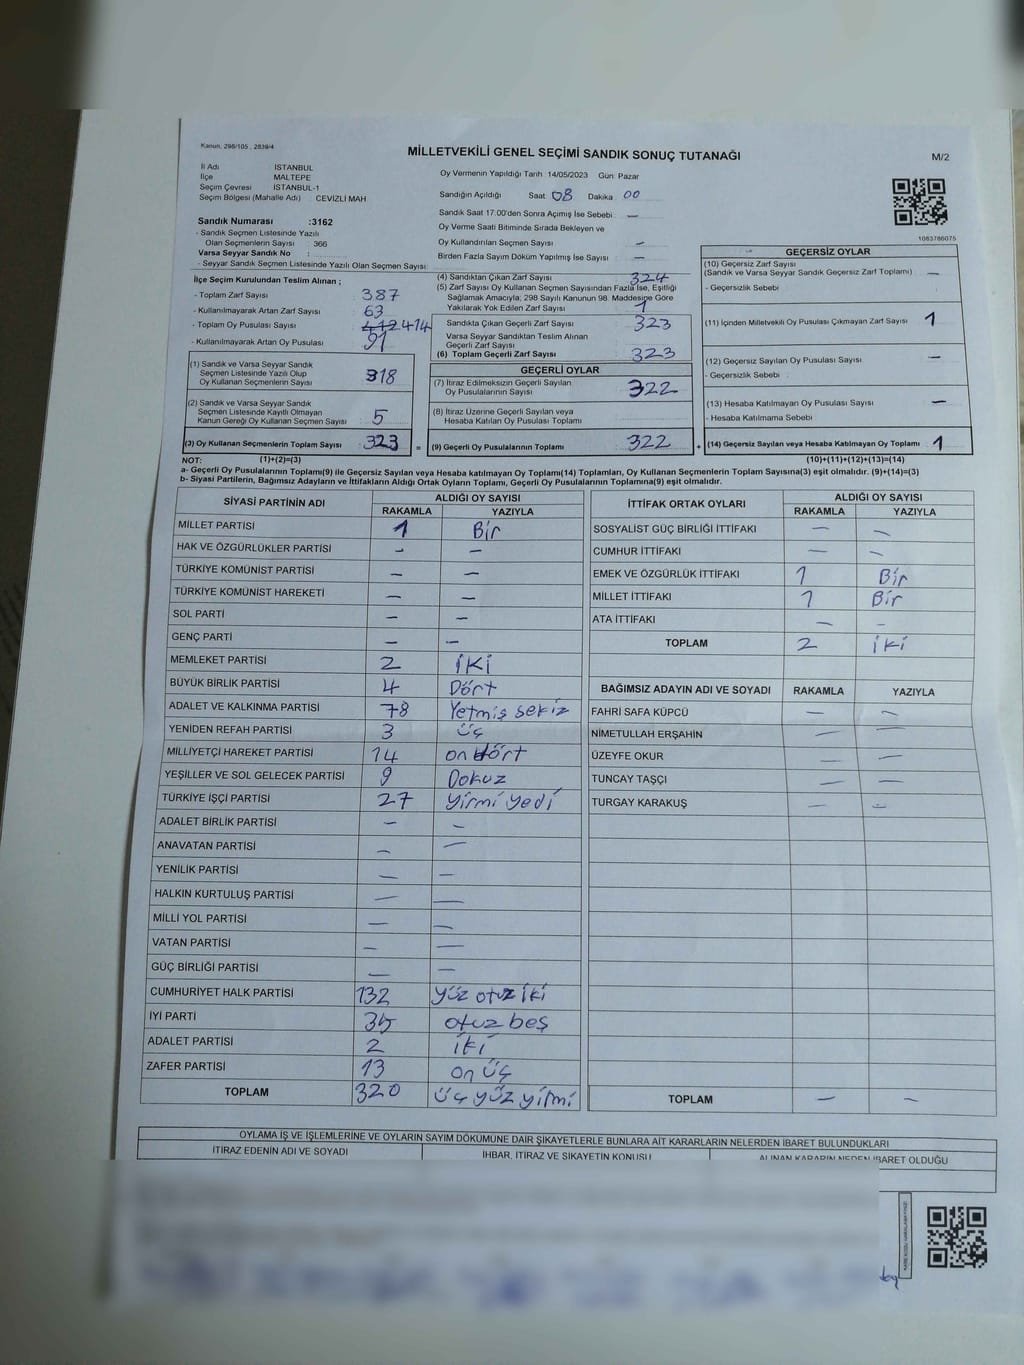 Kanun, 298/105 , 2839/4
MİLLETVEKİLİ GENEL SEÇİMİ SANDIK SONUÇ TUTANAĞI
M/2
İl Adı İSTANBUL
İlçe MALTEPE
Seçim Çevresi İSTANBUL-1
Seçim Bölgesi (Mahalle Adı) CEVİZLİ MAH
Oy Vermenin Yapıldığı Tarih 14/05/2023 Gün: Pazar
Sandığın Açıldığı Saat 08 Dakika 00
Sandık Saat 17:00'den Sonra Açımış İse Sebebi : —
Oy Verme Saati Bitiminde Sırada Bekleyen ve
Oy Kullandırılan Seçmen Sayısı —
Birden Fazla Sayım Döküm Yapılmış İse Sayısı —
1083786075
Sandık Numarası :3162
- Sandık Seçmen Listesinde Yazılı
Olan Seçmenlerin Sayısı : 366
Varsa Seyyar Sandık No :
- Seyyar Sandık Seçmen Listesinde Yazılı Olan Seçmen Sayısı:
İlçe Seçim Kurulundan Teslim Alınan ;
- Toplam Zarf Sayısı 387
- Kullanılmayarak Artan Zarf Sayısı 63
- Toplam Oy Pusulası Sayısı 412 414
- Kullanılmayarak Artan Oy Pusulası 91
(1) Sandık ve Varsa Seyyar Sandık
Seçmen Listesinde Yazılı Olup
Oy Kullanan Seçmenlerin Sayısı 318
(2) Sandık ve Varsa Seyyar Sandık
Seçmen Listesinde Kayıtlı Olmayan
Kanun Gereği Oy Kullanan Seçmen Sayısı 5
(3) Oy Kullanan Seçmenlerin Toplam Sayısı 323 =
(4) Sandıktan Çıkan Zarf Sayısı 324
(5) Zarf Sayısı Oy Kullanan Seçmen Sayısından Fazla İse, Eşitliği
Sağlamak Amacıyla; 298 Sayılı Kanunun 98. Maddesine Göre
Yakılarak Yok Edilen Zarf Sayısı 1
Sandıkta Çıkan Geçerli Zarf Sayısı 323
Varsa Seyyar Sandıktan Teslim Alınan
Geçerli Zarf Sayısı
(6) Toplam Geçerli Zarf Sayısı 323
GEÇERLİ OYLAR
(7) İtiraz Edilmeksizin Geçerli Sayılan
Oy Pusulalarının Sayısı 322
(8) İtiraz Üzerine Geçerli Sayılan veya
Hesaba Katılan Oy Pusulası Toplamı
(9) Geçerli Oy Pusulalarının Toplamı 322 +
GEÇERSİZ OYLAR
(10) Geçersiz Zarf Sayısı
(Sandık ve Varsa Seyyar Sandık Geçersiz Zarf Toplamı) —
- Geçersizlik Sebebi :
(11) İçinden Milletvekili Oy Pusulası Çıkmayan Zarf Sayısı 1
(12) Geçersiz Sayılan Oy Pusulası Sayısı —
- Geçersizlik Sebebi :
(13) Hesaba Katılmayan Oy Pusulası Sayısı —
- Hesaba Katılmama Sebebi :
(14) Geçersiz Sayılan veya Hesaba Katılmayan Oy Toplamı 1
NOT: (1)+(2)=(3) (10)+(11)+(12)+(13)=(14)
a- Geçerli Oy Pusulalarının Toplamı(9) ile Geçersiz Sayılan veya Hesaba katılmayan Oy Toplamı(14) Toplamları, Oy Kullanan Seçmenlerin Toplam Sayısına(3) eşit olmalıdır. (9)+(14)=(3)
b- Siyasi Partilerin, Bağımsız Adayların ve İttifakların Aldığı Ortak Oyların Toplamı, Geçerli Oy Pusulalarının Toplamına(9) eşit olmalıdır.
SİYASİ PARTİNİN ADI ALDIĞI OY SAYISI
RAKAMLA YAZIYLA
MİLLET PARTİSİ 1 Bir
HAK VE ÖZGÜRLÜKLER PARTİSİ — —
TÜRKİYE KOMÜNİST PARTİSİ — —
TÜRKİYE KOMÜNİST HAREKETİ — —
SOL PARTİ — —
GENÇ PARTİ — —
MEMLEKET PARTİSİ 2 İKİ
BÜYÜK BİRLİK PARTİSİ 4 Dört
ADALET VE KALKINMA PARTİSİ 78 Yetmiş sekiz
YENİDEN REFAH PARTİSİ 3 üç
MİLLİYETÇİ HAREKET PARTİSİ 14 on dört
YEŞİLLER VE SOL GELECEK PARTİSİ 9 Dokuz
TÜRKİYE İŞÇİ PARTİSİ 27 yirmi yedi
ADALET BİRLİK PARTİSİ — —
ANAVATAN PARTİSİ — —
YENİLİK PARTİSİ — —
HALKIN KURTULUŞ PARTİSİ — —
MİLLİ YOL PARTİSİ — —
VATAN PARTİSİ — —
GÜÇ BİRLİĞİ PARTİSİ — —
CUMHURİYET HALK PARTİSİ 132 yüz otuz iki
İYİ PARTİ 35 otuz beş
ADALET PARTİSİ 2 iki
ZAFER PARTİSİ 13 on üç
TOPLAM 320 üç yüz yirmi
İTTİFAK ORTAK OYLARI ALDIĞI OY SAYISI
RAKAMLA YAZIYLA
SOSYALİST GÜÇ BİRLİĞİ İTTİFAKI — —
CUMHUR İTTİFAKI — —
EMEK VE ÖZGÜRLÜK İTTİFAKI 1 Bir
MİLLET İTTİFAKI 1 Bir
ATA İTTİFAKI — —
TOPLAM 2 iki
BAĞIMSIZ ADAYIN ADI VE SOYADI RAKAMLA YAZIYLA
FAHRİ SAFA KÜPCÜ — —
NİMETULLAH ERŞAHİN — —
ÜZEYFE OKUR — —
TUNCAY TAŞÇI — —
TURGAY KARAKUŞ — —
TOPLAM — —
OYLAMA İŞ VE İŞLEMLERİNE VE OYLARIN SAYIM DÖKÜMÜNE DAİR ŞİKAYETLERLE BUNLARA AİT KARARLARIN NELERDEN İBARET BULUNDUKLARI
İTİRAZ EDENİN ADI VE SOYADI İHBAR, İTİRAZ VE ŞİKAYETİN KONUSU ALINAN KARARIN NEDEN İBARET OLDUĞU